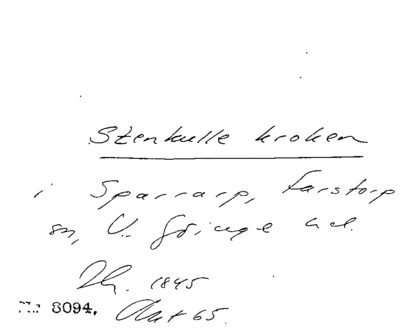 Stenkulle kroken
i Sparrarp, Farstorp
sn, V. Göinge hd.
1845
Nr 8094. Akt 65.